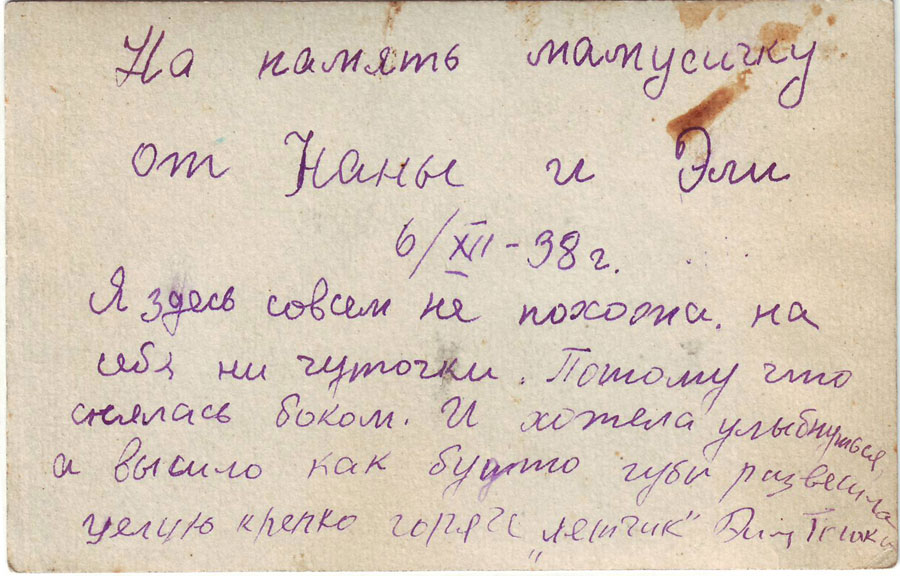 На память мамусичку
от Наны и Эли
6/XII - 38 г.
Я здесь совсем не похожа. на
себя ни чуточки. Потому что
снялась боком. И хотела улыбнуться,
а высило как будто губы развесила
целую крепко горячо „летчик"